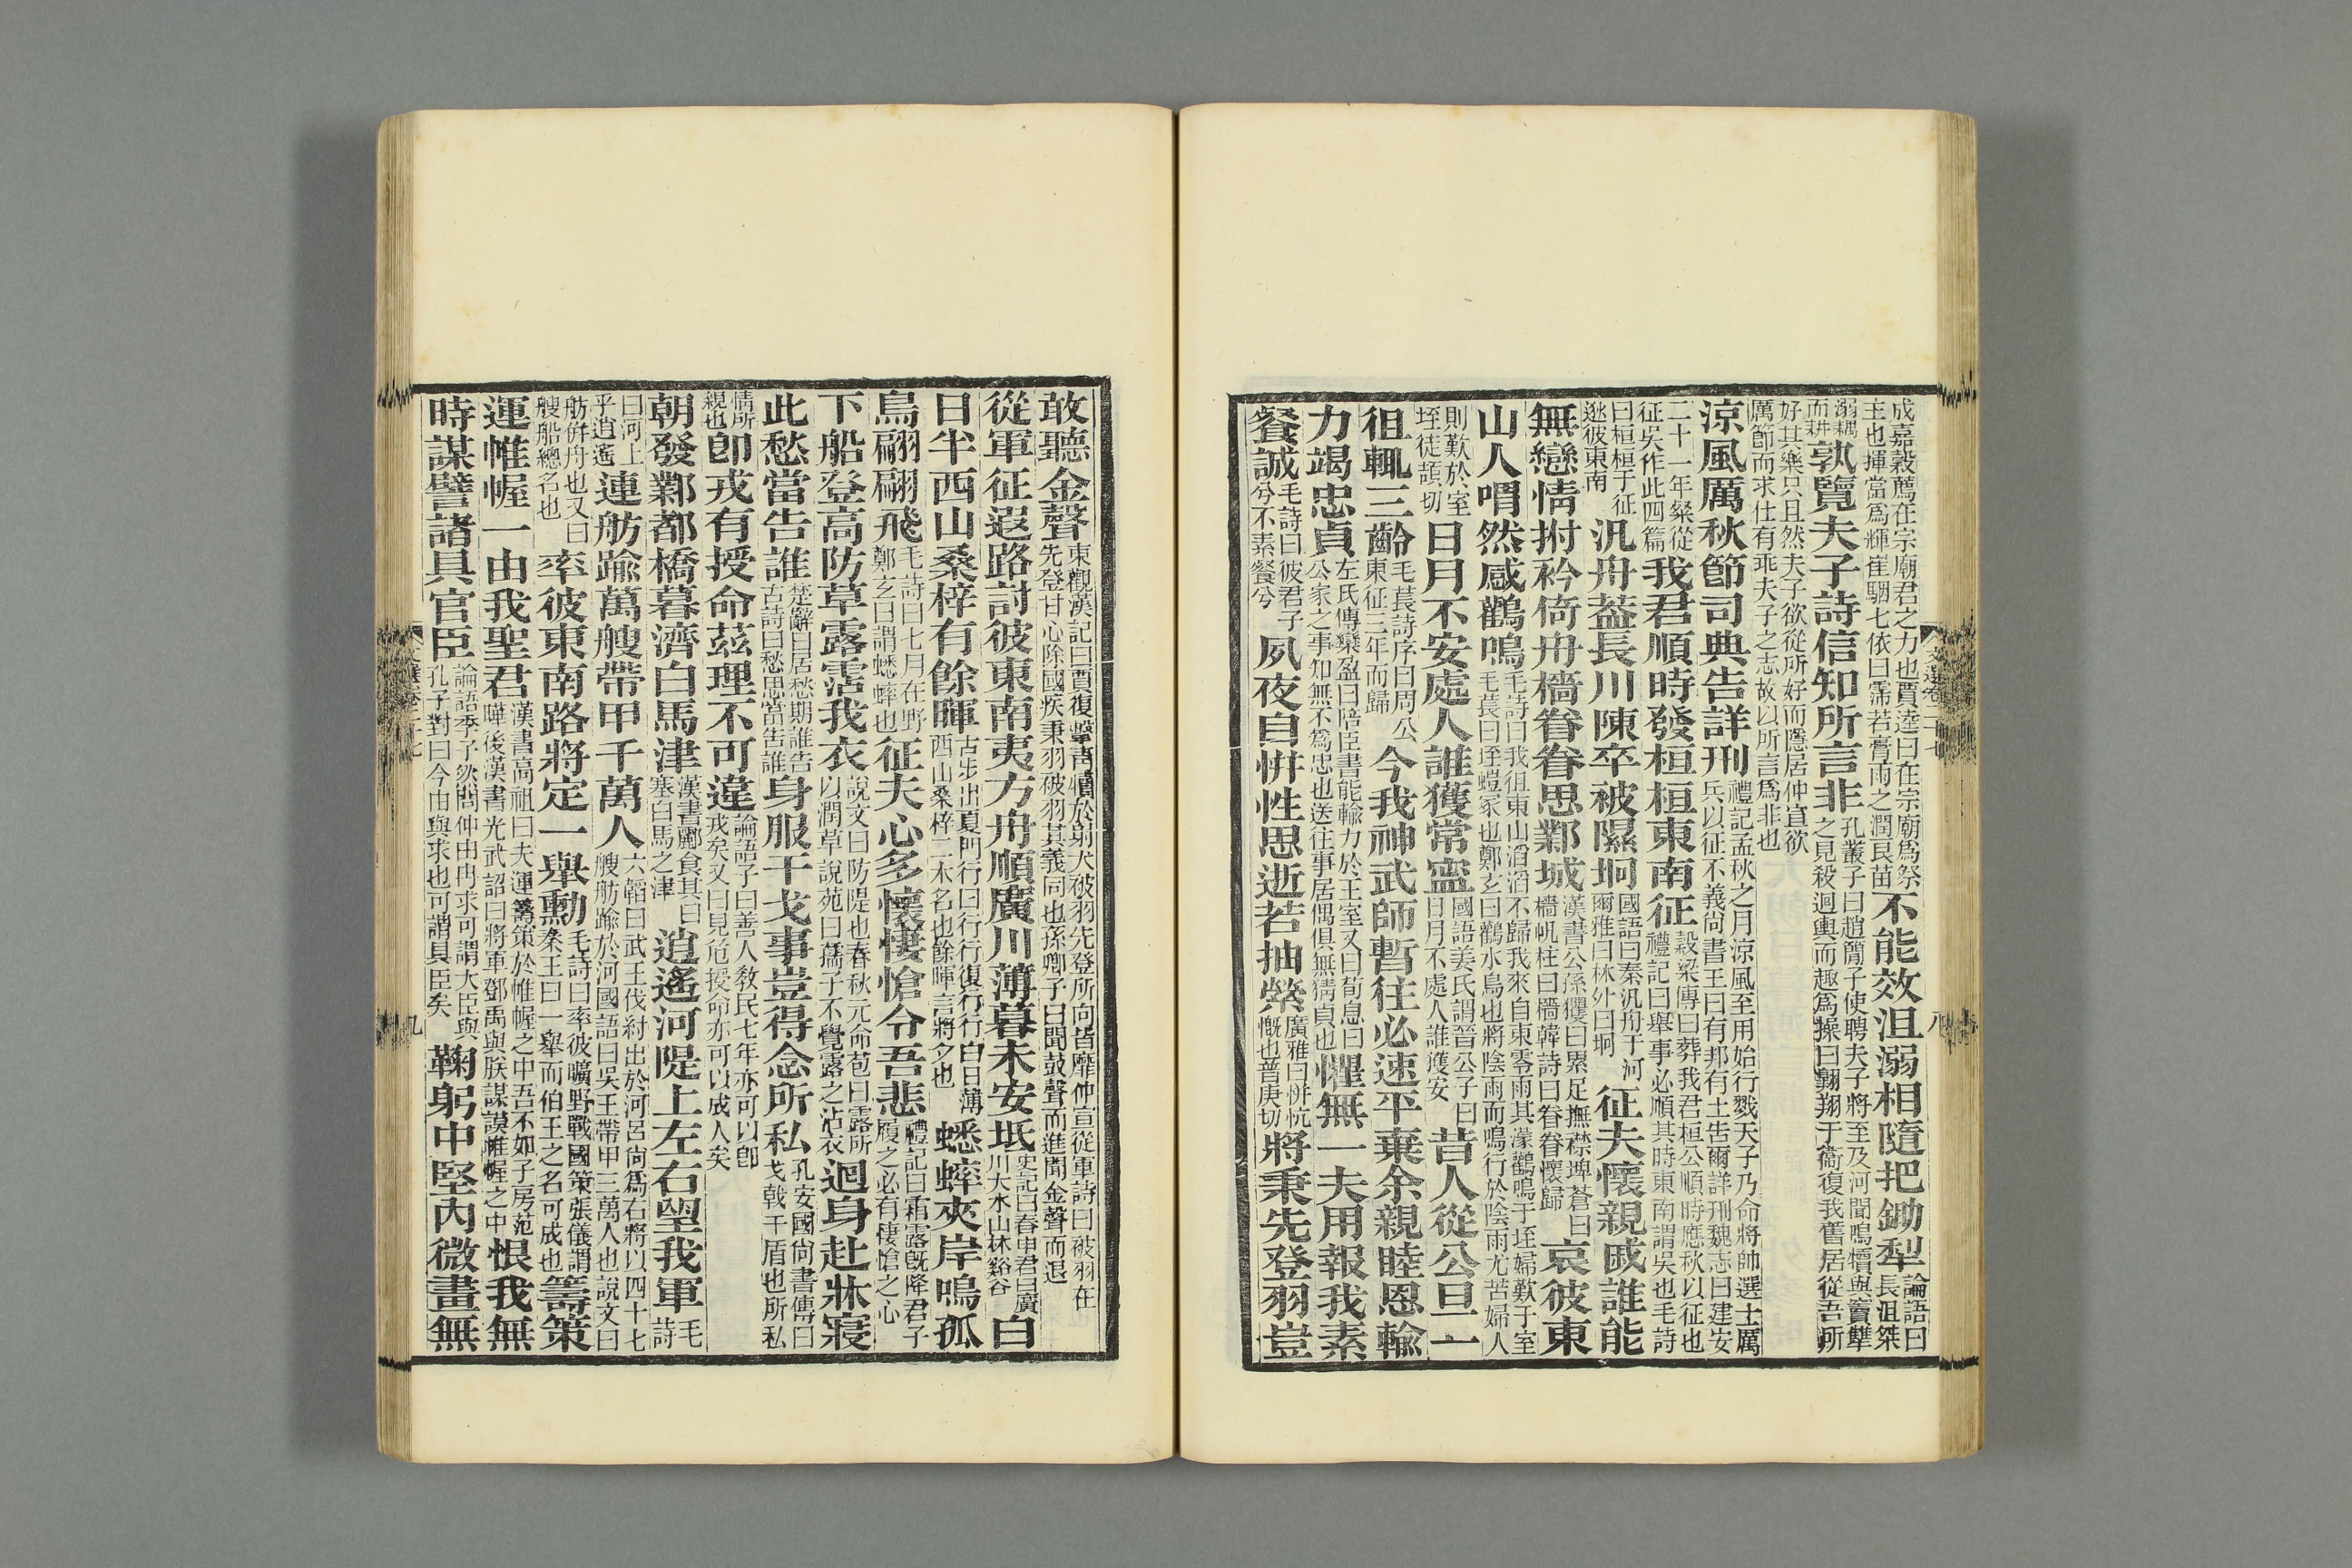 成嘉穀薦在宗廟君之力也賈逵曰在宗廟爲祭主也揮當爲輝崔駰七依曰霈若膏雨之潤良苗不能效沮溺相隨把鋤犁論語曰長沮桀
溺耦而耕孰覽夫子詩信知所言非孔叢子曰趙簡子使聘夫子將至及河聞鳴犢與竇犫之見殺迴輿而趣爲操曰翺翔于衞復我舊居從吾所
好其樂只且然夫子欲從所好而隱居仲宣欲厲節而求仕有乖夫子之志故以所言爲非也
涼風厲秋節司典告詳刑禮記孟秋之月涼風至用始行戮天子乃命將帥選士厲兵以征不義尚書王曰有邦有土告爾詳刑魏志曰建安
二十一年粲從征吳作此四篇我君順時發桓桓東南征穀梁傳曰葬我君桓公順時應秋以征也禮記曰舉事必順其時東南謂吳也毛詩
曰桓桓于征逖彼東南汎舟葢長川陳卒被隰坰國語曰秦汎舟于河爾雅曰林外曰坰征夫懷親戚誰能
無戀情拊衿倚舟檣眷眷思鄴城漢書公孫玃曰累足撫襟埤蒼曰檣帆柱曰檣韓詩曰眷眷懷歸哀彼東
山人喟然感鸛鳴毛詩曰我徂東山滔滔不歸我來自東零雨其濛鸛鳴于垤婦歎于室毛萇曰垤螘冢也鄭玄曰鸛水鳥也將陰雨而鳴行於陰雨尤苦婦人
則歎於室垤徒頡切日月不安處人誰獲常寧國語姜氏謂晉公子曰日月不處人誰獲安昔人從公旦一
徂輒三齡毛萇詩序曰周公東征三年而歸今我神武師暫往必速平棄余親睦恩輸
力竭忠貞左氏傳欒盈曰陪臣書能輸力於王室又曰荀息曰公家之事知無不爲忠也送往事居偶俱無猜貞也懼無一夫用報我素
餐誠毛詩曰彼君子兮不素餐兮夙夜自恲性思逝若抽縈廣雅曰恲忼慨也普庚切將秉先登羽豈
敢聽金聲東觀漢記曰賈復擊青犢於射犬被羽先登所向皆靡仲宣從軍詩曰被羽在先登甘心除國疾秉羽被羽其義同也孫卿子曰聞鼓聲而進聞金聲而退
從軍征遐路討彼東南夷方舟順廣川薄暮未安坻史記曰春申君曰廣川大水山林谿谷白
日半西山桑梓有餘暉古步出夏門行曰行行復行行白日薄西山桑梓二木名也餘暉言將夕也蟋蟀夾岸鳴孤
鳥翩翩飛毛詩曰七月在野鄭玄曰謂蟋蟀也征夫心多懷悽愴令吾悲禮記曰霜露旣降君子履之必有悽愴之心
下船登高防草露霑我衣說文曰防隄也春秋元命苞曰露所以潤草說苑曰孺子不覺露之沾衣迴身赴牀寢
此愁當告誰楚辭曰居愁期誰告古詩曰愁思當告誰身服干戈事豈得念所私孔安國尙書傳曰戈戟干盾也所私
情所親也卽戎有授命茲理不可違論語子曰善人敎民七年亦可以卽戎矣又曰見危授命亦可以成人矣
朝發鄴都橋暮濟白馬津漢書酈食其曰塞白馬之津逍遙河隄上左右望我軍毛詩
曰河上乎逍遙連舫踰萬艘帶甲千萬人六韜曰武王伐紂出於河呂尙爲右將以四十七艘舫踰於河國語曰吳王帶甲三萬人也說文曰
舫併舟也又曰艘船總名也率彼東南路將定一舉勳毛詩曰率彼曠野戰國策張儀謂秦王曰一舉而伯王之名可成也籌策
運帷幄一由我聖君漢書高祖曰夫運籌策於帷幄之中吾不如子房范曄後漢書光武詔曰將軍鄧禹與朕謀謨帷幄之中恨我無
時謀譬諸具官臣論語季子然問仲由冉求可謂大臣與孔子對曰今由與求也可謂具臣矣鞠躬中堅內微畫無